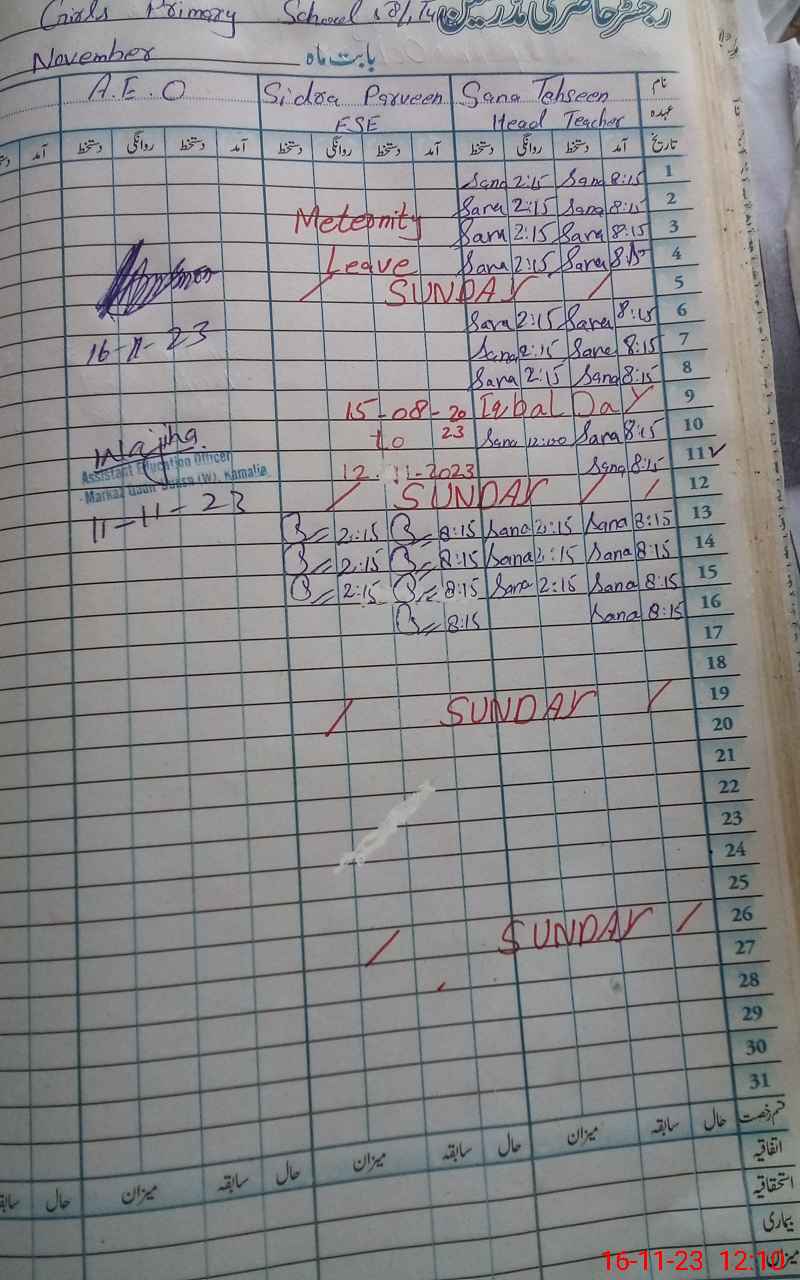 Girls Primary School
رجسٹر حاضری مدرسین
November
بابت ماہ
A.E.O Sidra Parveen Sana Tehseen نام
ESE Head Teacher عہدہ
آمد دستخط روانگی دستخط آمد دستخط روانگی دستخط آمد دستخط روانگی دستخط تاریخ
Sana 2:15 Sana 8:15 1
Sana 2:15 Sana 8:15 2
Meternity Sana 2:15 Sana 8:15 3
Leave Sana 2:15 Sana 8:15 4
SUNDAY 5
Sana 2:15 Sana 8:15 6
16-11-23 Sana 2:15 Sana 8:15 7
Sana 2:15 Sana 8:15 8
15-08-2023 Iqbal Day 9
to Sana 12:00 Sana 8:15 10
Assistant Education Officer
12-11-2023 Sana 8:15 11
Markaz (W), Kamalia
SUNDAY 12
11-11-23
2:15 8:15 Sana 2:15 Sana 8:15 13
2:15 8:15 Sana 2:15 Sana 8:15 14
2:15 8:15 Sana 2:15 Sana 8:15 15
8:15 Sana 8:15 16
17
18
SUNDAY 19
20
21
22
23
24
25
SUNDAY 26
27
28
29
30
31
حال سابقہ میزان حال سابقہ میزان حال سابقہ میزان حال سابقہ قسم رخصت
اتفاقیہ
استحقاقیہ
بیماری
میزان
16-11-23 12:10